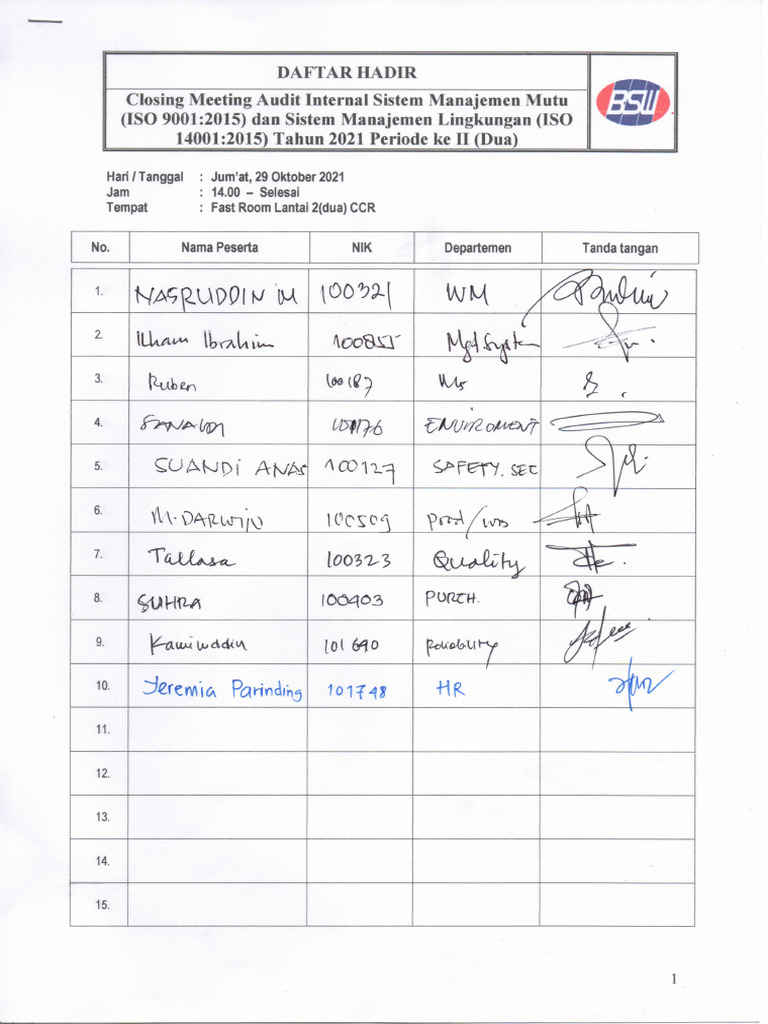 DAFTAR HADIR
BSW
Closing Meeting Audit Internal Sistem Manajemen Mutu
(ISO 9001:2015) dan Sistem Manajemen Lingkungan (ISO
14001:2015) Tahun 2021 Periode ke II (Dua)
Hari / Tanggal : Jum'at, 29 Oktober 2021
Jam : 14.00 – Selesai
Tempat : Fast Room Lantai 2(dua) CCR
No. Nama Peserta NIK Departemen Tanda tangan
1. NASRUDDIN M 100321 WM
2. Ilham Ibrahim 100855 Mgt.System
3. Ruben 100187
4. ENVIROMENT
5. SUANDI ANAS 100127 SAFETY. SEC
6. M. DARWIN 100509 prod/
7. Tallasa 100323 Quality
8. SUHRA 100403 PURCH.
9. Kamiruddin 101690 Reliability
10. Jeremia Parinding 101748 HR
11.
12.
13.
14.
15.
1